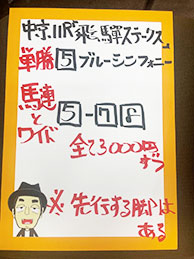 中京11R飛騨ステークス
単勝 5 ブルーシンフォニー
馬連とワイド
5-78
全て3000円ずつ
※先行する脚はある